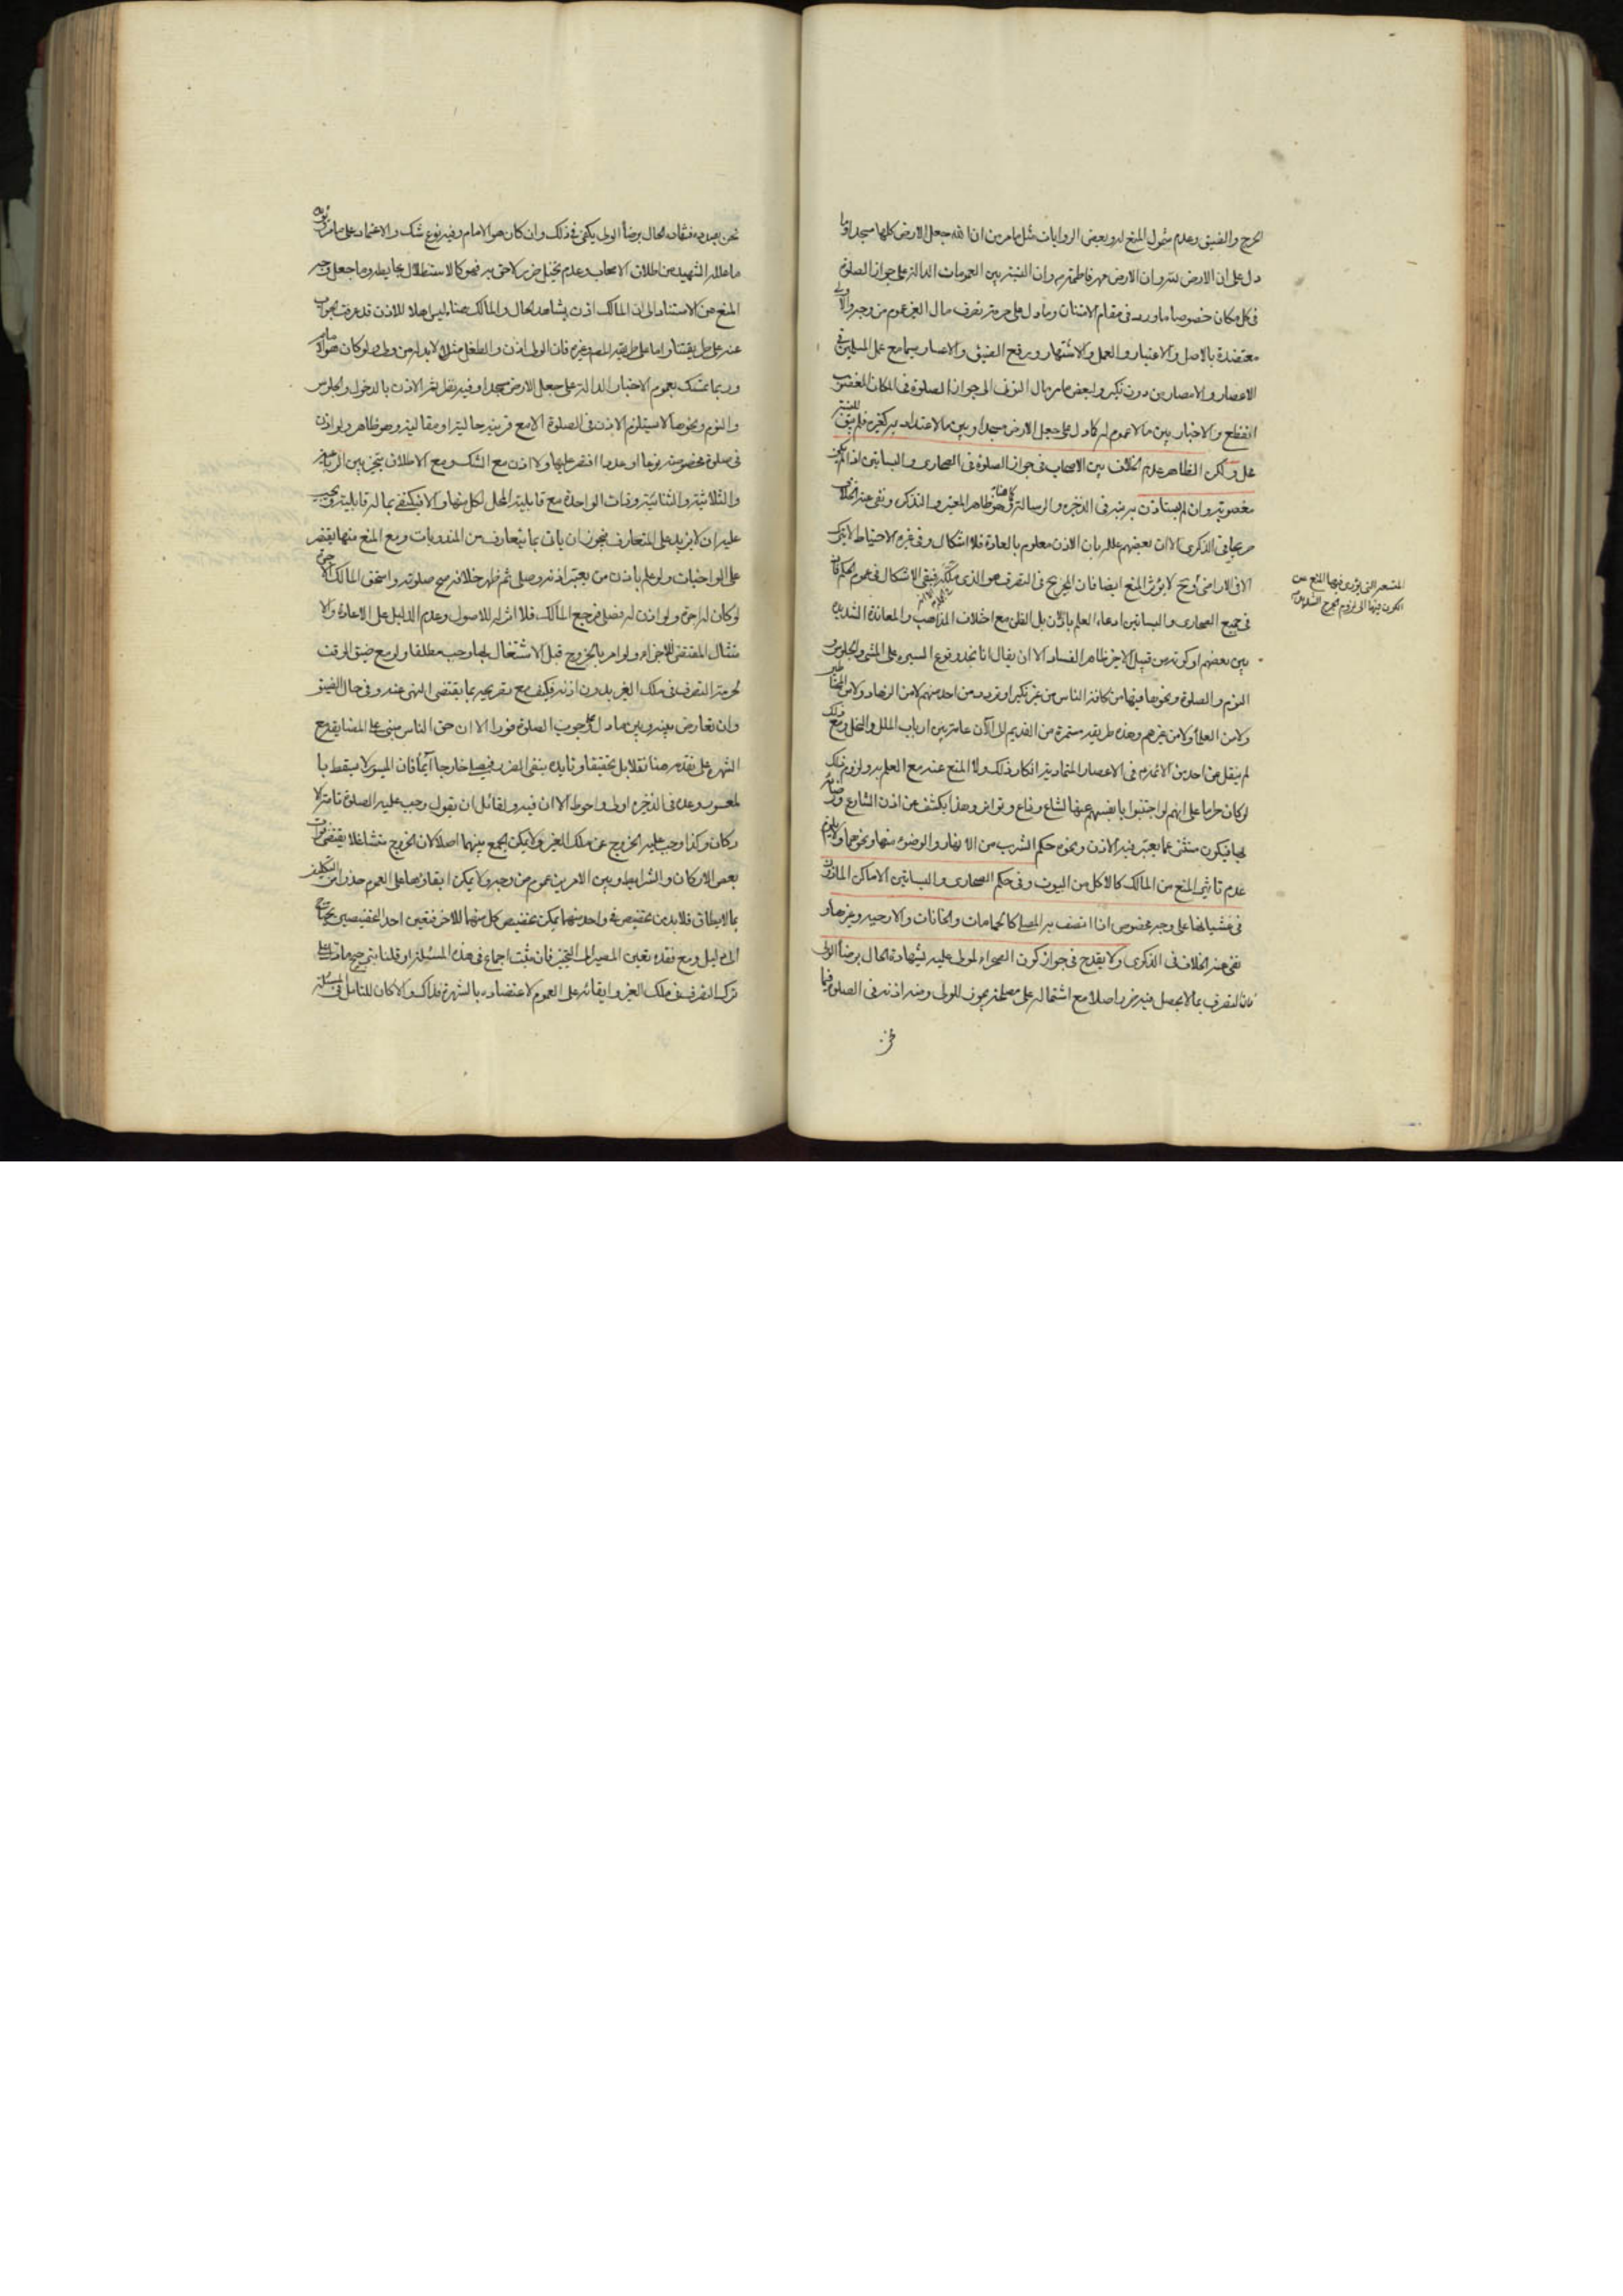 الحرج والضيق وعدم شمول المنع له وبعض الروايات مثل ما مر من ان الله جعل الارض كلها مسجدا وما
دل على ان الارض لنا وان الارض مهر فاطمة وان النسبة بين العمومات الدالة على جواز الصلوة
فى كل مكان خصوصا ما ورد فى مقام الامتنان وما دل على حرمة تصرف مال الغير عموم من وجه والاولى
معتضدة بالاصل والاعتبار والعمل والاشتهار وبرفع الضيق والاعسار سيما مع عمل المسلمين فى
الاعصار والامصار من دون نكير ولبعض مامر مال الى جواز الصلوة فى المكان المغصوب
النسبة من الاخبار بين مالا عموم له كما دل على جعل الارض مسجدا وبين مالا اعتداد به كغيره فلم يبق
محل ولكن الظاهر عدم الخلاف بين الاصحاب فى جواز الصلوة فى الصحارى والبساتين اذا لم يكن
مغصوبة وان لم يستاذن به فى الذخيره والرسالة وهو ظاهر المعتبر والتذكره ونفى عنه الخلاف
صريحا فى الذكرى الا ان بعضهم علله بان الاذن معلوم بالعادة فلا اشكال وفى غيره الاحتياط لا يترك
الا فى الاراضى وح لا يؤثر المنع ايضا فان الحرج فى التصرف هو الذى فيبقى الاشكال فى عموم الحكم فان
المتسعة التى يؤدى فيها المنع عن
الكون فيها الى لزوم الحرج الشديد
فى جميع الصحارى والبساتين ادعاء العلم بالاذن بل الظن مع اختلاف المذاهب والمعاندة الشديدة
بين بعضهم او كونه من قبيل الاخير ظاهر الفساد الا ان يقال انا نجد وقوع السيره على المشى والجلوس
النوم والصلوة ونحوها فيها من كافة الناس من غير نكير او تردد من احد منهم لا من الزهاد ولا من
ولا من العلما ولا من غيرهم وهذه طريقه مستمرة من القديم الى الآن عامة بين ارباب الملل والنحل ومع ذلك
لم ينقل عن احد من الائمة فى الاعصار المتماديه انكار ذلك ولا المنع عنه مع العلم به ولزوم ذلك
لو كان حراما على انهم لو اجتنبوا بانفسهم عنها لشاع وذاع وتواتر وهذا يكشف عن اذن الشارع ورضائه
بها فيكون مستثنى عما يعتبر فيه الاذن ونحوه حكم الشرب من الانهار والوضوء منها ونحوهما ولا يلزم
عدم تاثير المنع من المالك كالاكل من البيوت وفى حكم الصحارى والبساتين الاماكن الماذون
فى غشيانها على وجه مخصوص اذا اتصف به المصلى كالحمامات والخانات والارحيه وغيرها و
نفى عنه الخلاف فى الذكرى ولا يقدح فى جواز كون الصحراء لمولى عليه لشهادة الحال برضا الولى
فان التصرف بما لا يحصل فيه ضرر اصلا مع اشتماله على مصلحة يجوز للولى ومنه اذنه فى الصلوة فيما
نحن بصدده فشهادة الحال برضا الولى يكفى فى ذلك وان كان هو الامام وفيه نوع شك والاعتماد على مامر
ما علله الشهيد من اطلاق الاصحاب وعدم تخيل ضرر لاحق به فهو كالاستظلال بحايطه وما جعل وجه
المنع من الاستناد الى ان المالك اذن بشاهد الحال والمالك هنا ليس اهلا للاذن قد عرفت جوابه
عنه على طريقتنا واما على طريقة المص وغيره فان الولى اذن والطفل مثلا لا بد له من ولى ولو كان هو الامام
وربما تمسك بعموم الاخبار الدالة على جعل الارض مسجدا وفيه نظر ثم الاذن بالدخول والجلوس
والنوم ونحوها لا يستلزم الاذن فى الصلوة الا مع قرينة حالية او مقالية وهو ظاهر ولو اذن
فى صلوة مخصوصة نوعا او عددا اقتصر عليها ولا اذن مع الشك ومع الاطلاق يتخير بين الرباعية
والثلاثية والثنائية وذات الواحدة مع قابلية المحل لكل منها والا فيكتفى بماله قابلية ويجب
عليه ان لا يزيد على المتعارف فيجوز ان ياتى بما يتعارف من المندوبات ومع المنع منها يقتصر
على الواجبات ولو علم باذن من يعتبر اذنه وصلى ثم ظهر خلافه صح صلوته واستحق المالك الاجرة
لو كان له اجرة ولو اذن له فصلى فرجع المالك فلا اثر له للاصول وعدم الدليل على الاعادة والا
متثال المقتضى للاجزاء ولو امر بالخروج قبل الاشتغال بها وجب مطلقا ولو مع ضيق الوقت
لحرمة التصرف فى ملك الغير بدون اذنه فكيف مع تصريحه بما يقتضى النهى عنه وفى حال الضيق
وان تعارض بينه وبين ما دل على وجوب الصلوة فورا الا ان حق الناس مبنى على المضايقة مع
الشهرة على تقدمه هنا نقلا بل تحقيقا وتاييده بنفى الضرر فيصلى خارجا آتيا فان الميسور لا يسقط با
لمعسور وعده فى الذخيره اولى واحوط الا ان فيه ولقائل ان يقول وجب عليه الصلوة تامة الا
ركان وكذا وجب عليه الخروج عن ملك الغير ولا يمكن الجمع بينهما اصلا لان الخروج متشاغلا يقتضى فوات
بعض الاركان والشرايط وبين الامرين عموم من وجه ولا يمكن ابقاؤهما على العموم حذرا من التكليف
بما لا يطاق فلا بد من تخصيص فى واحد منهما يمكن تخصيص كل منهما للاخر فتعين احد التخصيصين يحتاج
الى دليل ومع فقده تعين المصير الى التخيير فان ثبت اجماع فى هذه المسئلة او قلنا بترجيح ما دل على
ترك التصرف فى ملك الغير وابقائه على العموم لاعتضاده بالشهرة فذاك والا كان للتامل فى المسئلة